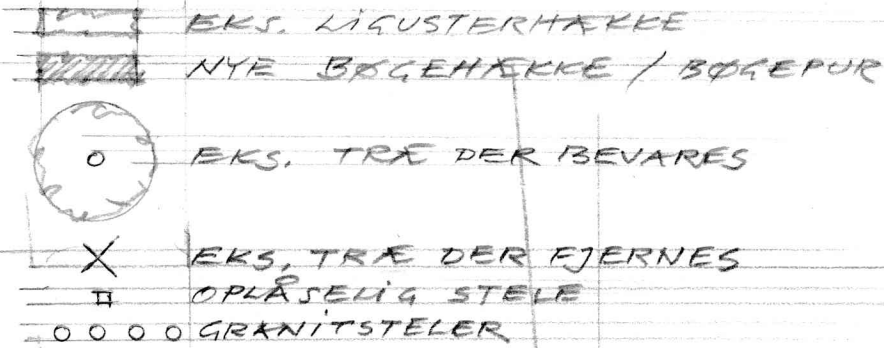 EKS. LIGUSTERHÆKKE
NYE BØGEHÆKKE / BØGEPUR
EKS. TRÆ DER BEVARES
EKS. TRÆ DER FJERNES
OPLÅSELIG STELE
GRANITSTELER